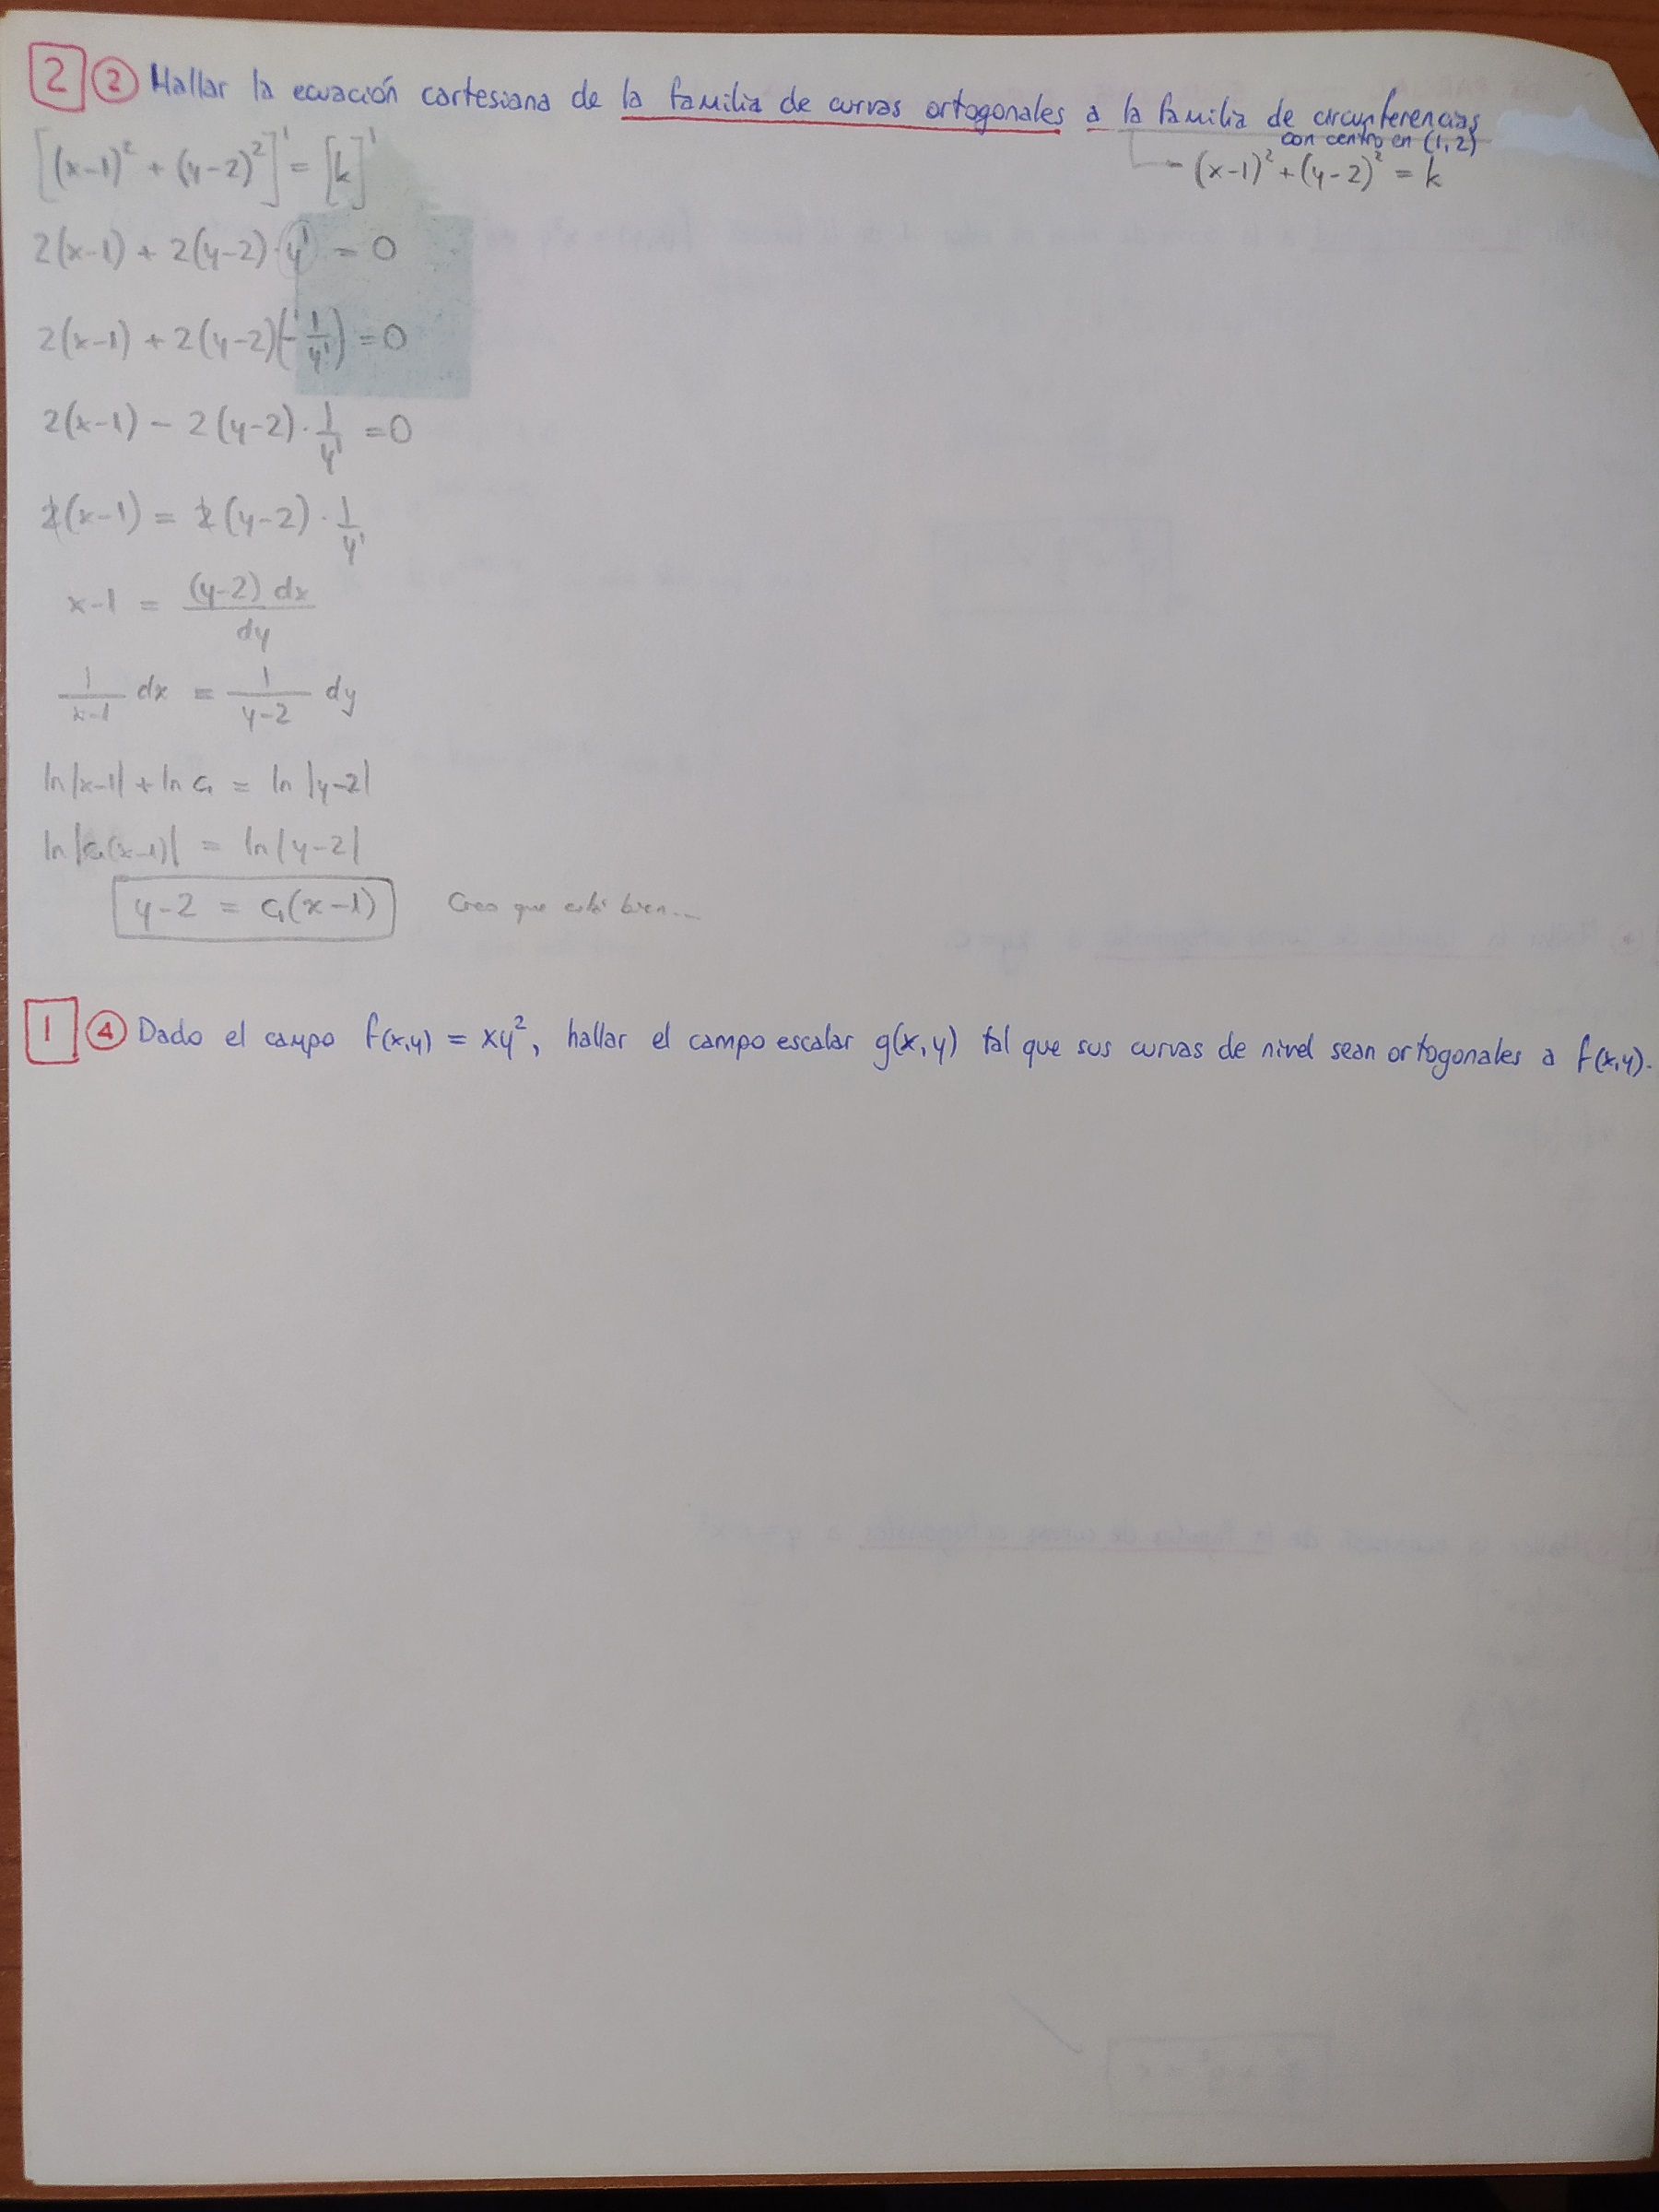 2 ② Hallar la ecuación cartesiana de la familia de curvas ortogonales a la familia de circunferencias
con centro en (1,2)
(x-1)² + (y-2)² = k
[(x-1)² + (y-2)²]' = [k]'
2(x-1) + 2(y-2)·y' = 0
2(x-1) + 2(y-2)(-1/y') = 0
2(x-1) - 2(y-2)·1/y' = 0
2(x-1) = 2(y-2)·1/y'
x-1 = (y-2) dx/dy
1/(x-1) dx = 1/(y-2) dy
ln|x-1| + ln C₁ = ln|y-2|
ln|C₁(x-1)| = ln|y-2|
y-2 = C₁(x-1) Creo que está bien...
1 ④ Dado el campo f(x,y) = xy², hallar el campo escalar g(x,y) tal que sus curvas de nivel sean ortogonales a f(x,y).